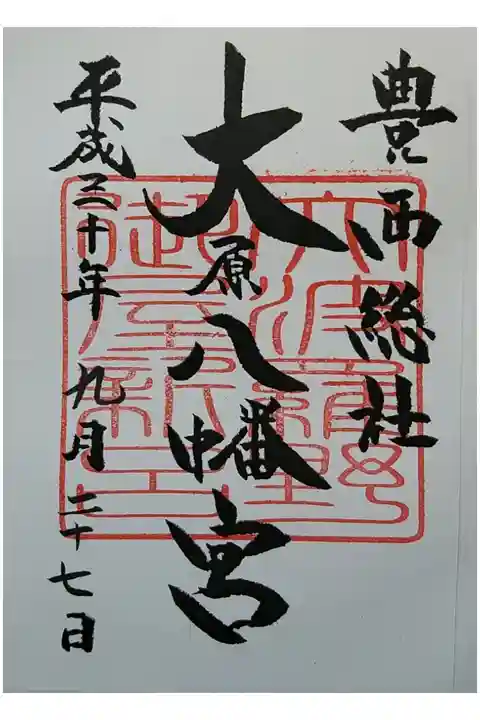 豊西総社
大原八幡宮
平成三十年九月二十七日